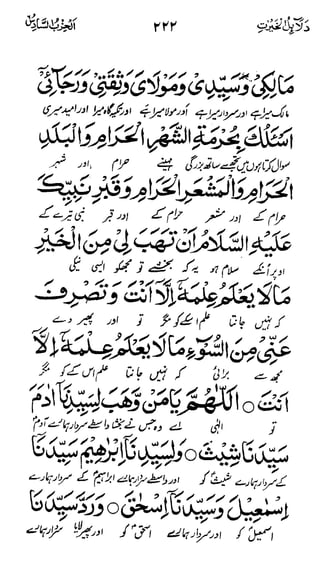 دلائل الخیرات ۲۲۲ الحزب السادس
مَالِكِیْ وَسَیِّدِیْ وَمَوْلَایَ وَثِقَتِیْ وَرَجَآئِیْ
مالک میرا ہے اور سردار میرا ہے اور مولا میرا ہے اور تکیہ گاہ میرا اور امید میری
اَسْئَلُكَ بِحُرْمَةِ الشَّهْرِ الْحَرَامِ وَالْبَلَدِ
سوال کرتا ہوں میں تجھسے ساتھ بزرگی مہینے حرام اور شہر
الْحَرَامِ وَالْمَشْعَرِ الْحَرَامِ وَقَبْرِ نَبِیِّكَ
حرام کے اور مشعر حرام کے اور قبر نبی تیرے کے
عَلَیْهِ السَّلَامُ اَنْ تَهَبَ لِیْ مِنَ الْخَیْرِ
اوپر اُنکے سلام ہو یہ کہ بخشے تو مجھکو ایسی نیکی
مَالَا یَعْلَمُ عِلْمَهٗٓ اِلَّآ اَنْتَ وَتَصْرِفَ
کہ نہیں جانتا علم اسکے کو مگر تو اور پھیر دے
عَنِّیْ مِنَ السُّوْٓءِ مَالَا یَعْلَمُ عِلْمَهٗٓ اِلَّآ
مجھ سے بُرائی کہ نہیں جانتا علم اس کے کو مگر
اَنْتَ ○ اَللّٰهُمَّ یَا مَنْ وَّهَبَ لِسَیِّدِنَآ اٰدَمَ
تو الٰہی اے وہ جس نے بخشا واسطے سردار ہمارے آدم
سَیِّدَنَا شِیْثَ ○ وَلِسَیِّدِنَآ اِبْرٰهِیْمَ سَیِّدَنَا
کے سردار ہمارے شیث کو اور واسطے سردار ہمارے ابراہیم کے سردار ہمارے
اِسْمٰعِیْلَ وَسَیِّدَنَآ اِسْحٰقَ ○ وَرَدَّ سَیِّدَنَا
اسمعیل کو اور سردار ہمارے اسحٰق کو اور پھیر لایا سردار ہمارے